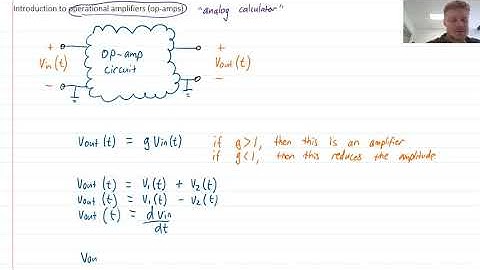 Introduction to operational amplifiers (op-amps) "analog calculator"
+ +
Vin(t) op-amp circuit Vout(t)
- -
Vout(t) = g Vin(t) if g>1, then this is an amplifier
if g<1, then this reduces the amplitude
Vout(t) = V1(t) + V2(t)
Vout(t) = V1(t) - V2(t)
Vout(t) = dVin/dt
Vou